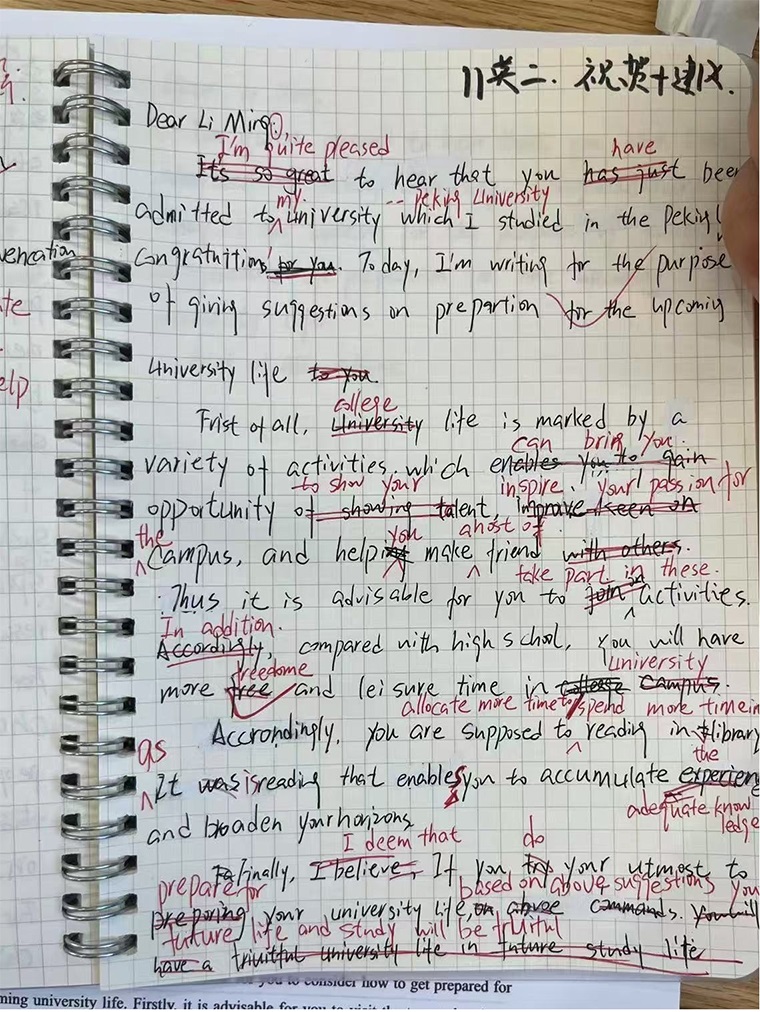 11英二.祝贺+建议.
Dear Li Ming,
I'm quite pleased have
Its so great to hear that you has just been
my -- Peking University
admitted to university which I studied in the Peking
Congratuition! for you. Today, I'm writing for the purpose
of giving suggestions on prepartion for the upcoming
University life to you.
college
Frist of all, University life is marked by a
can bring you
variety of activities, which enables you to gain
to show your inspire your passion for
opportunity of showing talent, improve keen on
the you a host of
Campus, and help make friend with others.
take part in these.
Thus it is advisable for you to join activities.
In addition.
Accordingly, compared with high school, you will have
freedome university
more free and leisure time in college campus.
allocate more time to spend more time in
Accrondingly, you are supposed to reading in library
as the
It was is reading that enables you to accumulate experien
adequate know
ledge
and broaden your horizons
I deem that do
Finally, I believe, If you try your utmost to
prepare for based on above suggestions you
preparing your university life, on abvoe commands. You will
future life and study will be fruitful
have a fruitful university life in future study life
vencation
te
elp
you to consider how to get prepared for
ming university life. Firstly, it is advisable for you to visit the